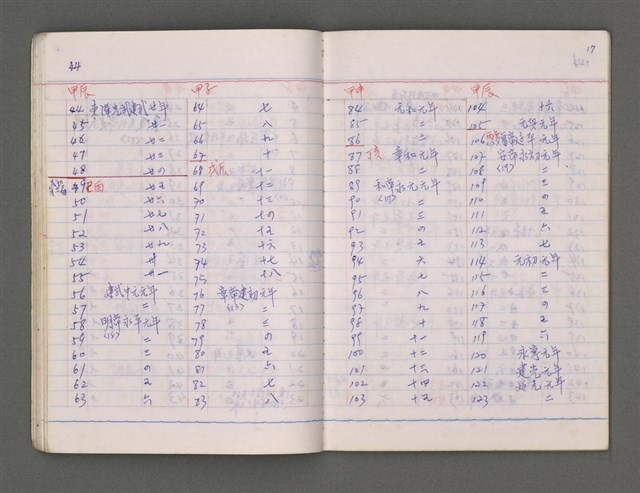 44
甲辰
44 東漢光武建武廿年
45 廿一
46 廿二
47 廿三
48 廿の
49 己酉 廿五
50 廿六
51 廿七
52 廿八
53 廿九
54 卅
55 卅一
56 建武中元元年
57 二
58 明帝永平元年
59 (18) 二
60 三
61 の
62 五
63 六
甲子
64 七
65 八
66 九
67 十
68 戊辰 十一
69 十二
70 十三
71 十の
72 十五
73 十六
74 十七
75 十八
76 章帝建初元年
77 (13) 二
78 三
79 の
80 五
81 六
82 七
83 八
17
甲申
84 元和元年
85 二
86 三
87 丁亥 章和元年
88 二
89 和帝永元元年
90 (17) 二
91 三
92 の
93 五
94 六
95 七
96 八
97 九
98 十
99 十一
100 十二
101 十三
102 十四
103 十五
甲辰
104 十六
105 元兴元年
106 殤帝延平元年
107 安帝永初元年
108 (19) 二
109 三
110 の
111 五
112 六
113 七
114 元初元年
115 二
116 三
117 の
118 五
119 六
120 永寧元年
121 建光元年
122 延光元年
123 二